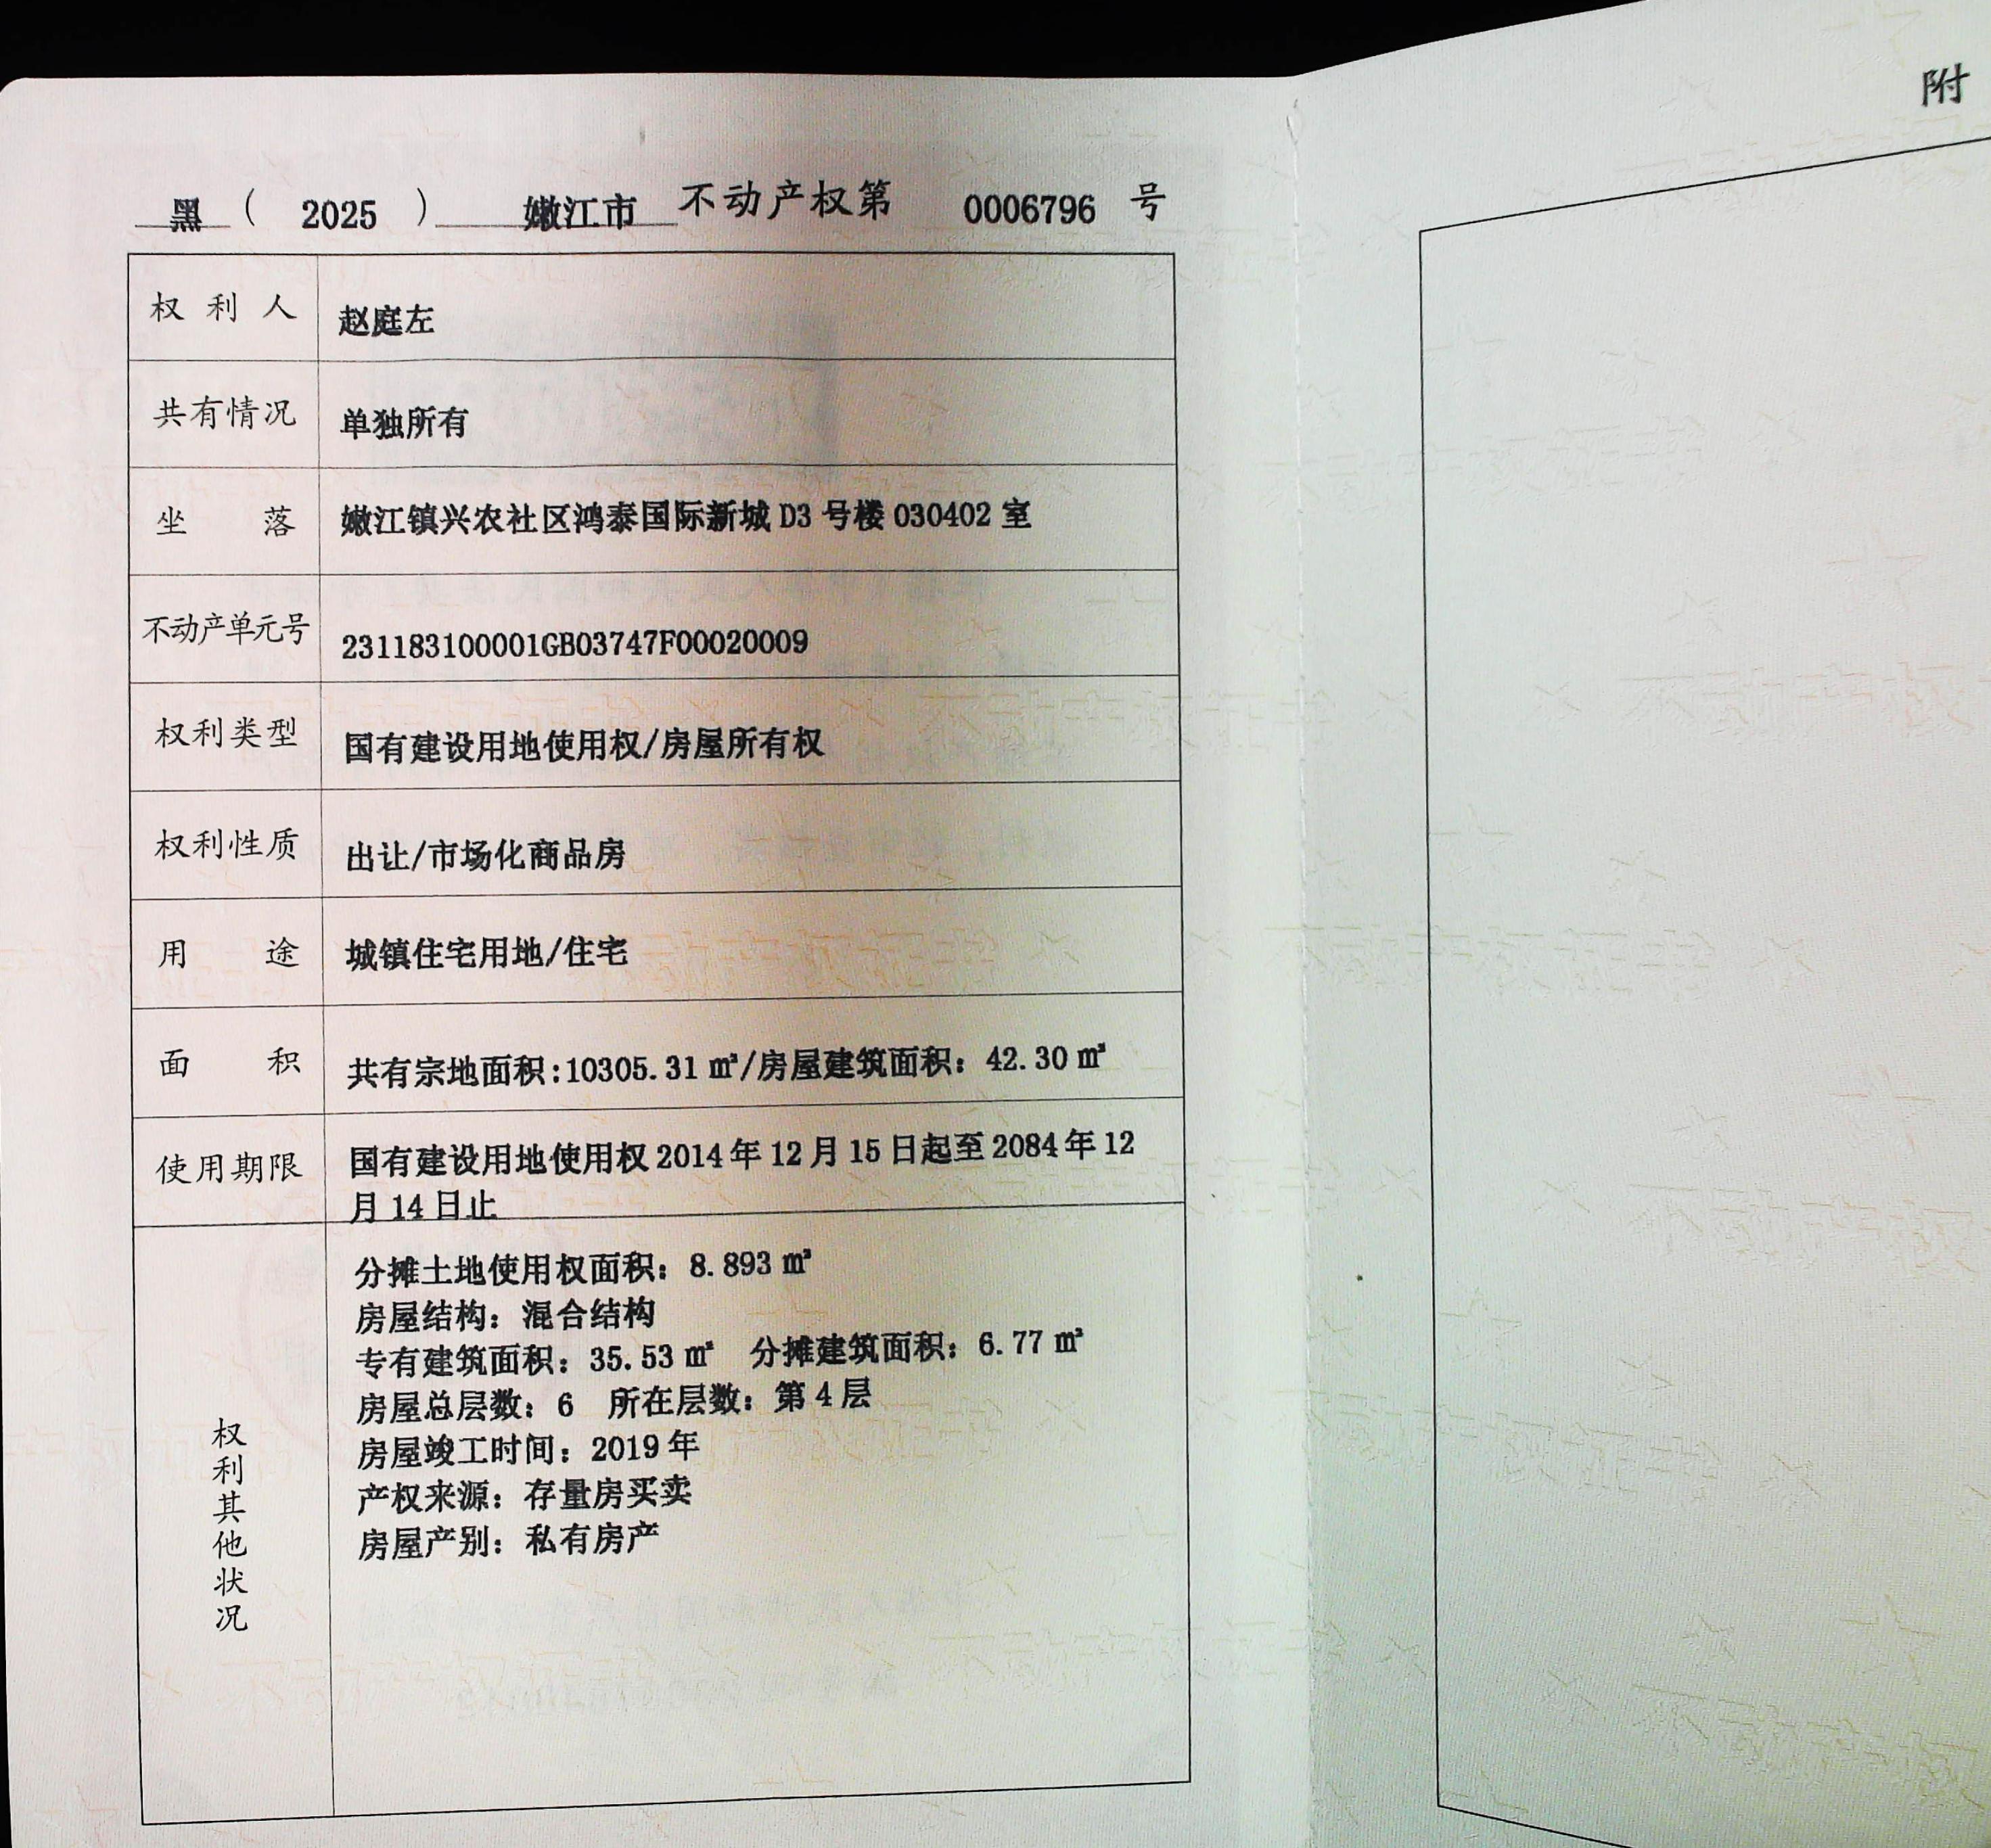 黑 ( 2025 ) 嫩江市 不动产权第 0006796 号
附
权利人 赵庭左
共有情况 单独所有
坐落 嫩江镇兴农社区鸿泰国际新城 D3 号楼 030402 室
不动产单元号 231183100001GB03747F00020009
权利类型 国有建设用地使用权/房屋所有权
权利性质 出让/市场化商品房
用途 城镇住宅用地/住宅
面积 共有宗地面积:10305.31 ㎡/房屋建筑面积：42.30 ㎡
使用期限 国有建设用地使用权 2014 年 12 月 15 日起至 2084 年 12
月 14 日止
权利其他状况
分摊土地使用权面积：8.893 ㎡
房屋结构：混合结构
专有建筑面积：35.53 ㎡ 分摊建筑面积：6.77 ㎡
房屋总层数：6 所在层数：第 4 层
房屋竣工时间：2019 年
产权来源：存量房买卖
房屋产别：私有房产